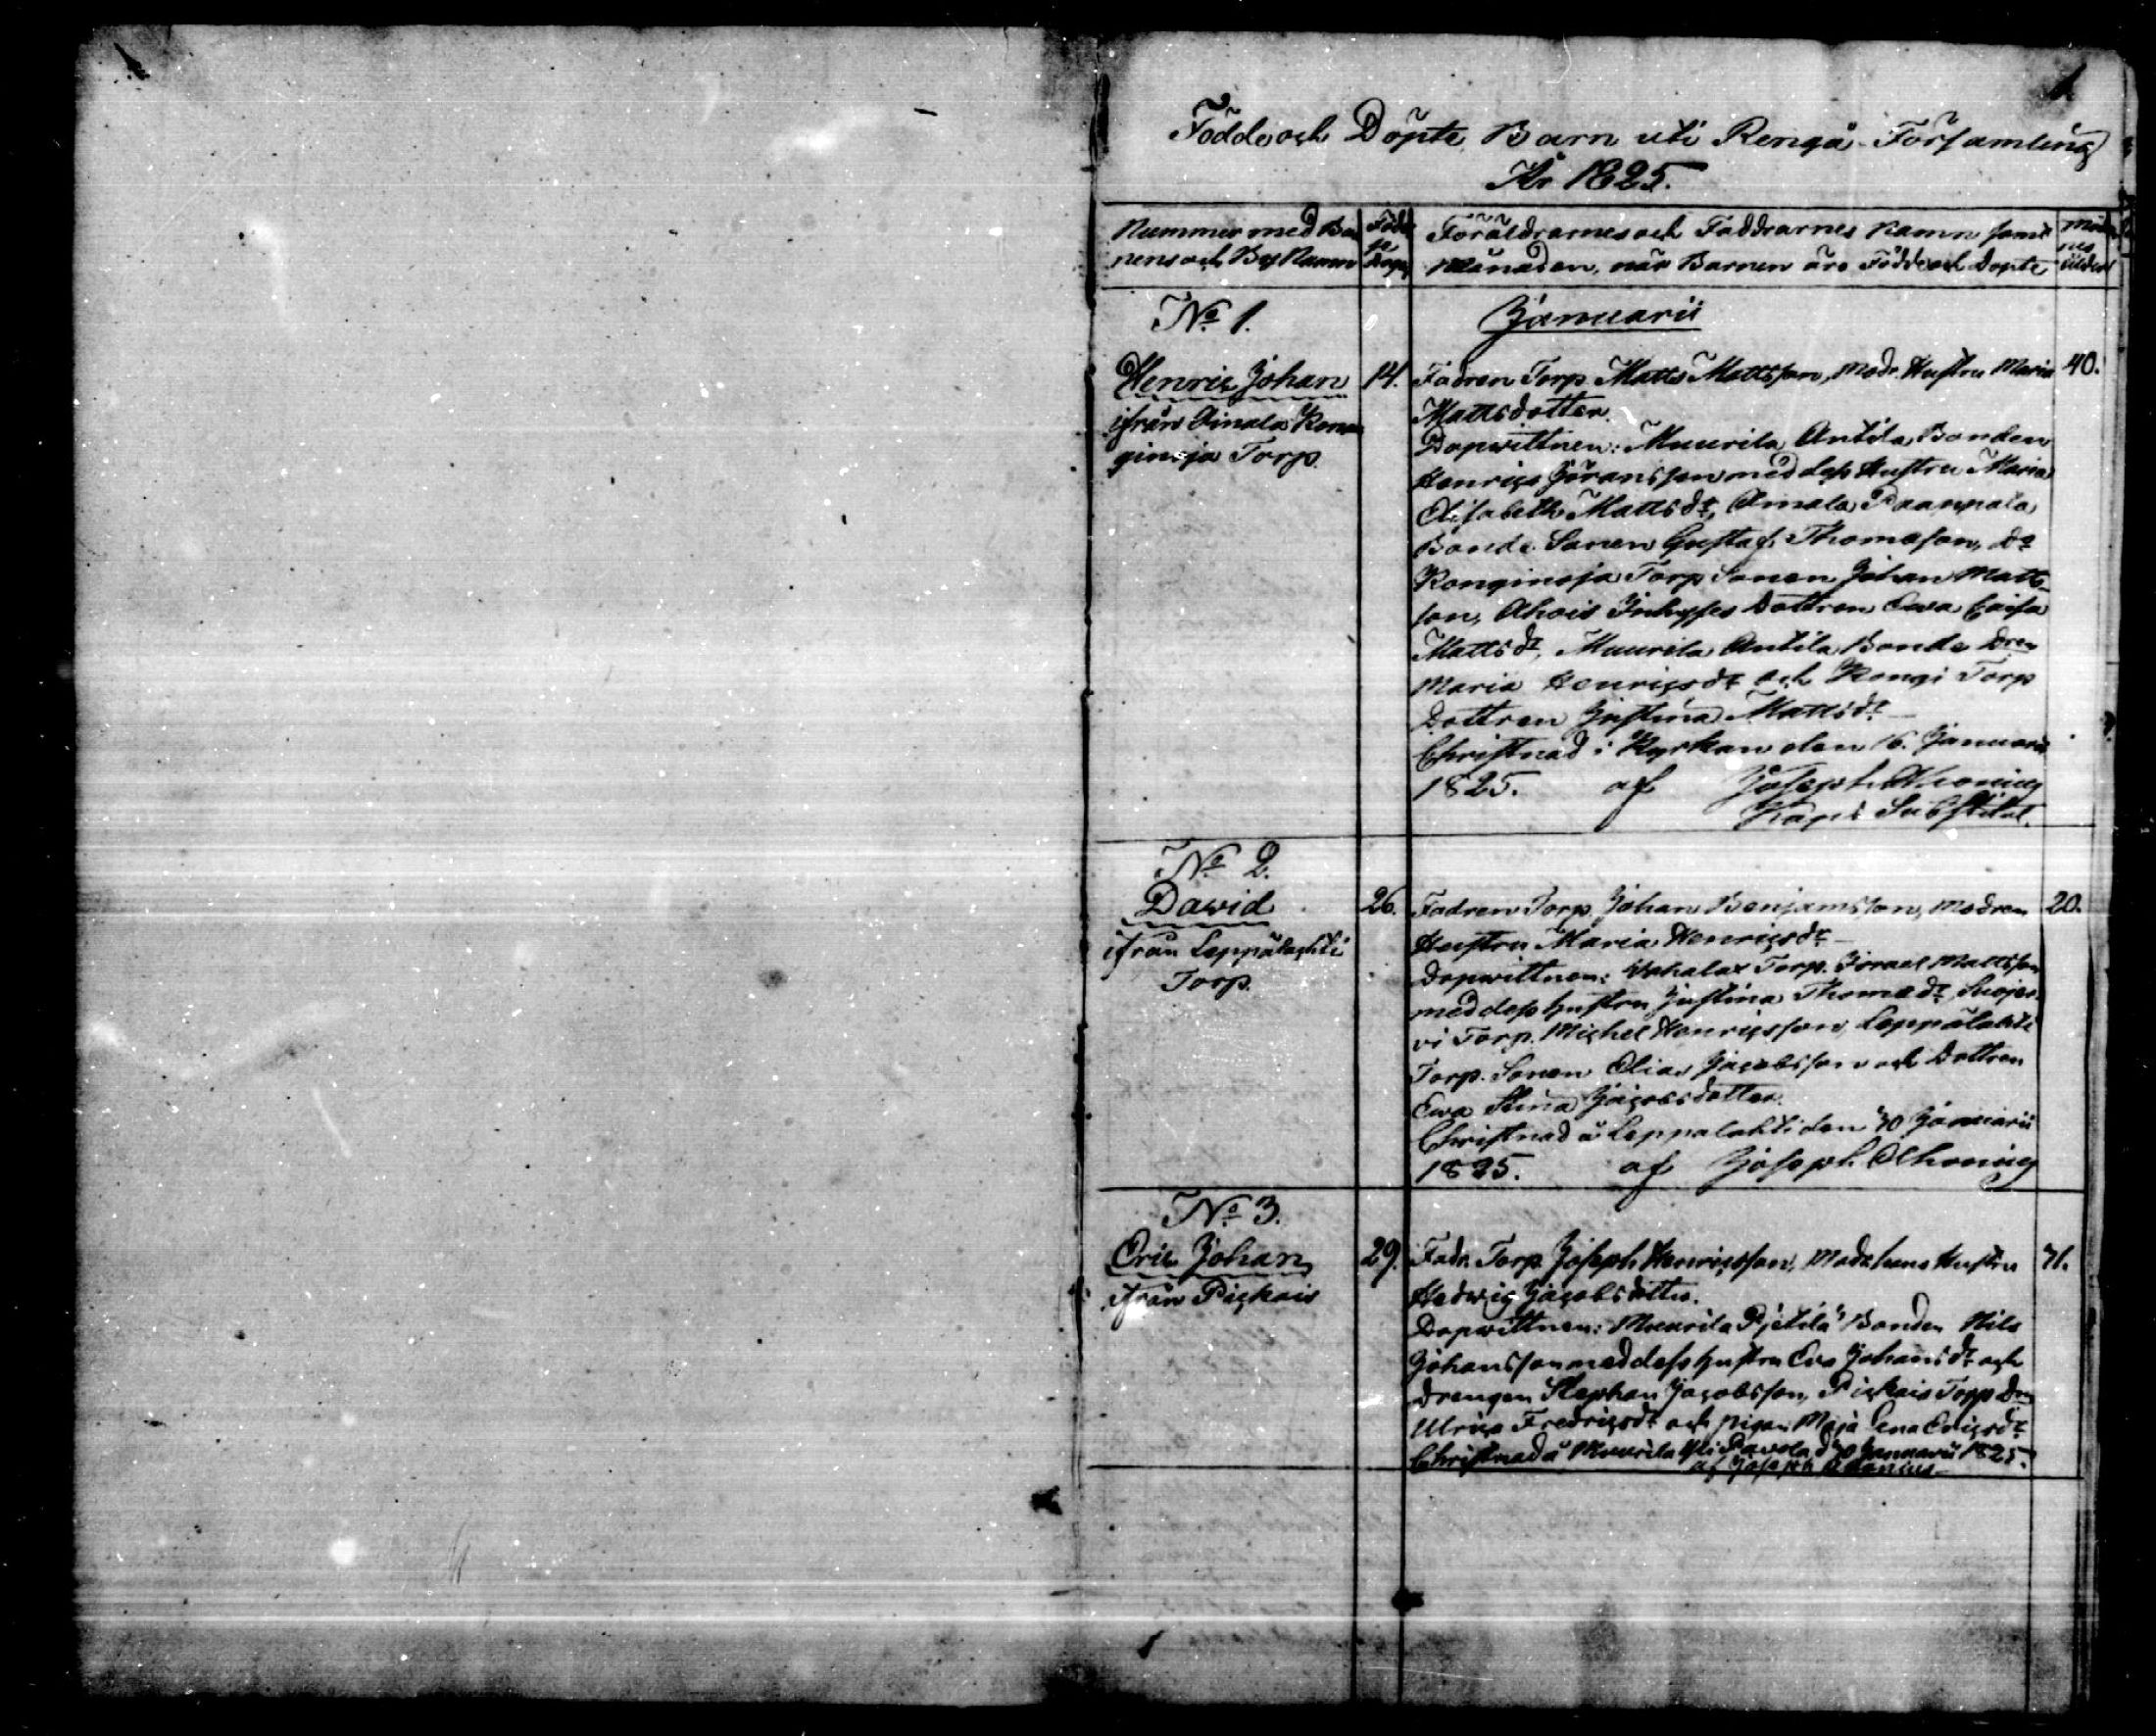 1
Födde och Döpte Barn uti Rengå Församling
År 1825.
Nummer med Bar
nens och Bys Namn
Födel
se
Dagar
Föräldrarnes och Faddrarnes Namn samt
Månaden, när Barnen äro Födde och Döpte
Mödrar
nes
ålder
Januarii
No 1.
Henric Johan
ifrån
ginoja Torp.
14.
Fadren Torp. Matts Mattsson, Modr. Hustru Maria
40.
Mattsdotter.
Dopwittnen: Muurila Antila Bonden
Henrics Göransson med dess Hustru Maria
Elisabeth Mattsdr, Paappala
Bonde Sonen Gustaf Thomason, Do
Konginoja Torp Sonen Johan Matts
son, Ahois Inhyses Dottren Ewa Caisa
Mattsdr, Muurila Antila Bonde Dren
Maria Henricsdr och Kongi Torp
Dottren Justina Mattsdr
Christnad i Kyrkan den 16. Januarii
1825. af Joseph
Kapls Substitut.
No 2.
Dawid
ifrån Leppälachti
Torp.
26.
Fadren Torp. Johan Benjamsson, Modren
20.
Hustru Maria Henricsdr
Dopwittnen: Torp. Israel Mattsson
med dess Hustru Justina Thomædr,
vi Torp. Michel Henricsson, Leppälahti
Torp. Sonen Elias Jacobsson och Dottren
Ewa Stina Jacobsdotter.
Christnad å Leppälahti den 30 Januarii
1825. af Joseph
No 3.
Eric Johan
ifrån Pickais
29.
Fadr. Torp. Joseph Henricsson, Modr. hans Hustru
31.
Hedwig Jacobsdotter.
Dopwittnen: Muurila Pietilä Bonden Nils
Johansson med dess Hustru Eva Johansdr och
Drengen Stephan Jacobsson, Pickais Torp Dren
Ulrica Fredricsdr och pigan Maja Lena Ericsdr
Christnad å Muurila Yli Pavola d 30 Januarii 1825.
af Joseph